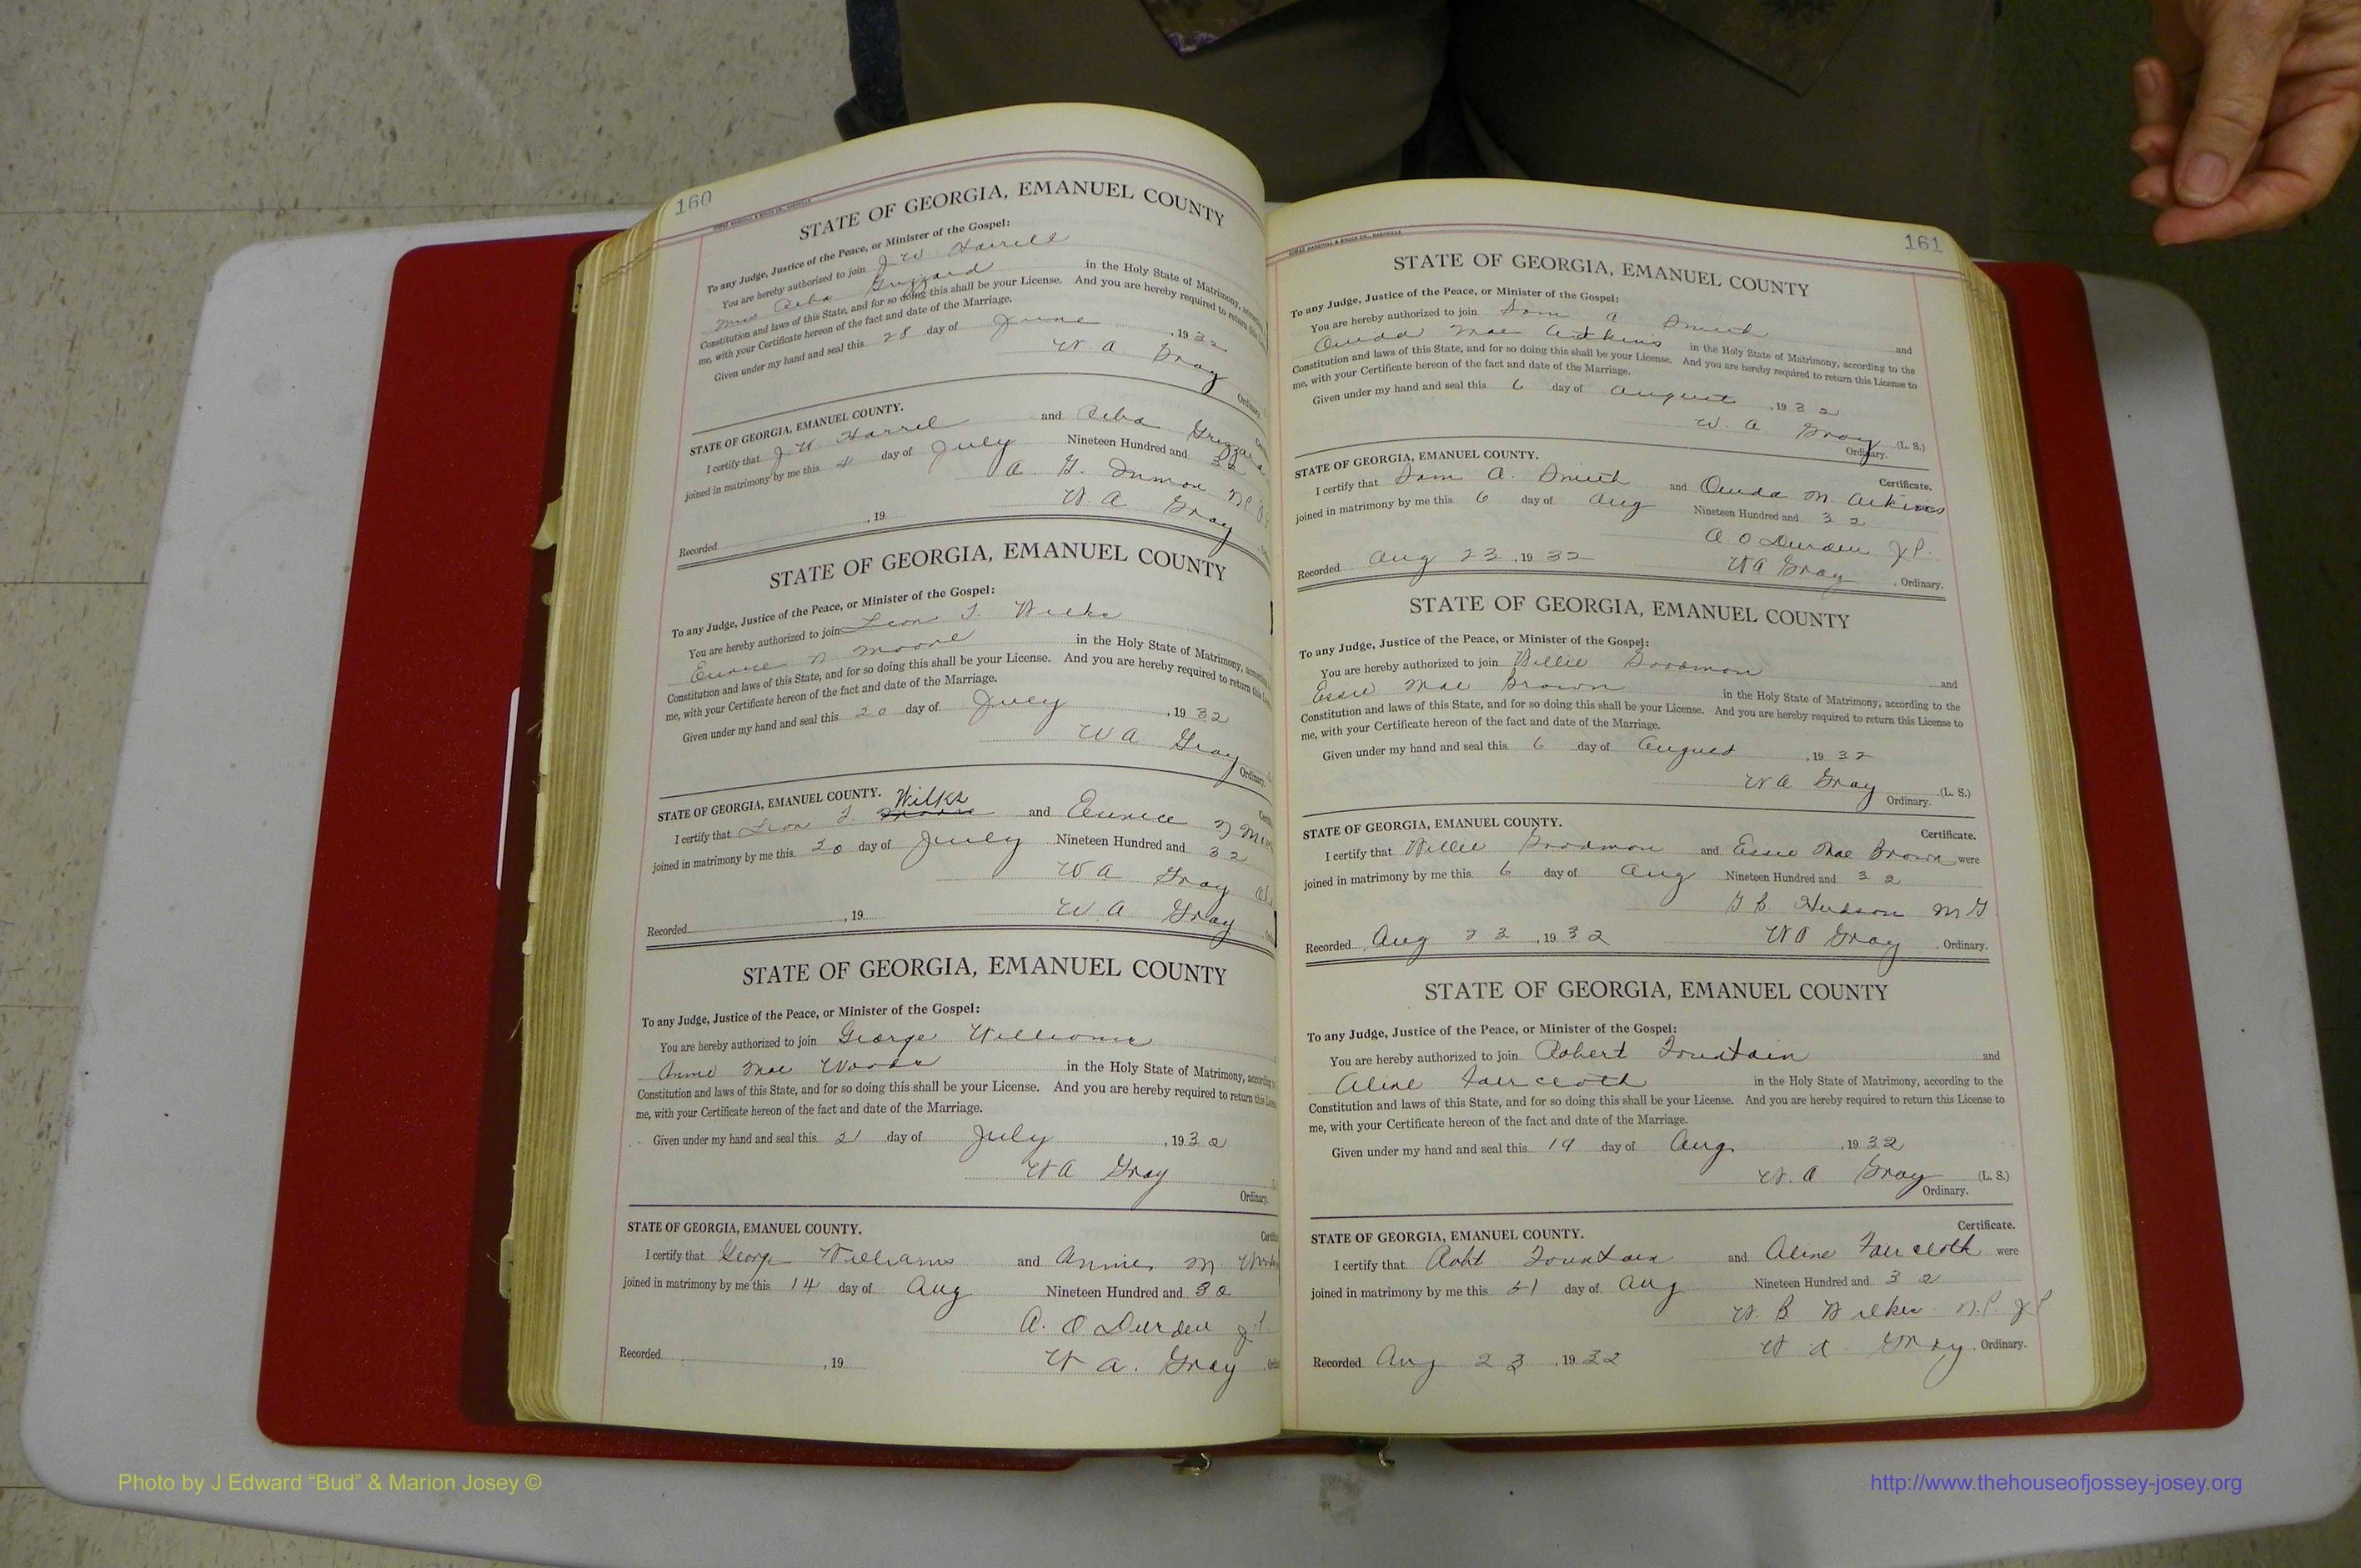 160
STATE OF GEORGIA, EMANUEL COUNTY
To any Judge, Justice of the Peace, or Minister of the Gospel:
You are hereby authorized to join J W Harrell
Miss Reba Grizzard in the Holy State of Matrimony,
Constitution and laws of this State, and for so doing this shall be your License. And you are hereby required to return this
me, with your Certificate hereon of the fact and date of the Marriage.
Given under my hand and seal this 28 day of June, 1932
W. A Gray
Ordinary.
STATE OF GEORGIA, EMANUEL COUNTY.
I certify that J. W. Harrel and Reba Grizzard
joined in matrimony by me this 4 day of July Nineteen Hundred and 32
A. G.
W. A Gray
Recorded , 19
STATE OF GEORGIA, EMANUEL COUNTY
To any Judge, Justice of the Peace, or Minister of the Gospel:
You are hereby authorized to join Leon T. Wilks
Eunice N Moore in the Holy State of Matrimony,
Constitution and laws of this State, and for so doing this shall be your License. And you are hereby required to return this
me, with your Certificate hereon of the fact and date of the Marriage.
Given under my hand and seal this 20 day of July, 1932
W A Gray
Ordinary.
STATE OF GEORGIA, EMANUEL COUNTY.
I certify that Leon T. Wilks and Eunice
joined in matrimony by me this 20 day of July Nineteen Hundred and 32
W A Gray
W. A. Gray
Recorded , 19
STATE OF GEORGIA, EMANUEL COUNTY
To any Judge, Justice of the Peace, or Minister of the Gospel:
You are hereby authorized to join George Williams
Annie Mae Woods in the Holy State of Matrimony,
Constitution and laws of this State, and for so doing this shall be your License. And you are hereby required to return this
me, with your Certificate hereon of the fact and date of the Marriage.
Given under my hand and seal this 21 day of July, 1932
W A Gray
Ordinary.
STATE OF GEORGIA, EMANUEL COUNTY.
I certify that George Williams and Annie M.
joined in matrimony by me this 14 day of Aug Nineteen Hundred and 32
A. O Durden
W A. Gray
Recorded , 19
161
STATE OF GEORGIA, EMANUEL COUNTY
To any Judge, Justice of the Peace, or Minister of the Gospel:
You are hereby authorized to join Sam A Smith and
Ouida Mae Adkins in the Holy State of Matrimony, according to the
Constitution and laws of this State, and for so doing this shall be your License. And you are hereby required to return this License to
me, with your Certificate hereon of the fact and date of the Marriage.
Given under my hand and seal this 6 day of August, 1932
W. A Gray (L. S.)
Ordinary.
STATE OF GEORGIA, EMANUEL COUNTY.
Certificate.
I certify that Sam A. Smith and Ouida M. Adkins
joined in matrimony by me this 6 day of Aug Nineteen Hundred and 32
A O Durden J P.
Recorded Aug 23, 1932 W A Gray, Ordinary.
STATE OF GEORGIA, EMANUEL COUNTY
To any Judge, Justice of the Peace, or Minister of the Gospel:
You are hereby authorized to join Willie Goodman and
Essie Mae Brown in the Holy State of Matrimony, according to the
Constitution and laws of this State, and for so doing this shall be your License. And you are hereby required to return this License to
me, with your Certificate hereon of the fact and date of the Marriage.
Given under my hand and seal this 6 day of August, 1932
W A Gray (L. S.)
Ordinary.
STATE OF GEORGIA, EMANUEL COUNTY.
Certificate.
I certify that Willie Goodman and Essie Mae Brown were
joined in matrimony by me this 6 day of Aug Nineteen Hundred and 32
G B. Hudson M G
Recorded Aug 23, 1932 W A Gray, Ordinary.
STATE OF GEORGIA, EMANUEL COUNTY
To any Judge, Justice of the Peace, or Minister of the Gospel:
You are hereby authorized to join Robert Fountain and
Aline Faircloth in the Holy State of Matrimony, according to the
Constitution and laws of this State, and for so doing this shall be your License. And you are hereby required to return this License to
me, with your Certificate hereon of the fact and date of the Marriage.
Given under my hand and seal this 19 day of Aug, 1932
W. A Gray (L. S.)
Ordinary.
STATE OF GEORGIA, EMANUEL COUNTY.
Certificate.
I certify that Robt Fountain and Aline Faircloth were
joined in matrimony by me this 21 day of Aug Nineteen Hundred and 32
W. B Wilkes N.P. J P
Recorded Aug 23, 1932 W A Gray, Ordinary.
Photo by J Edward “Bud” & Marion Josey ©
http://www.thehouseofjossey-josey.org